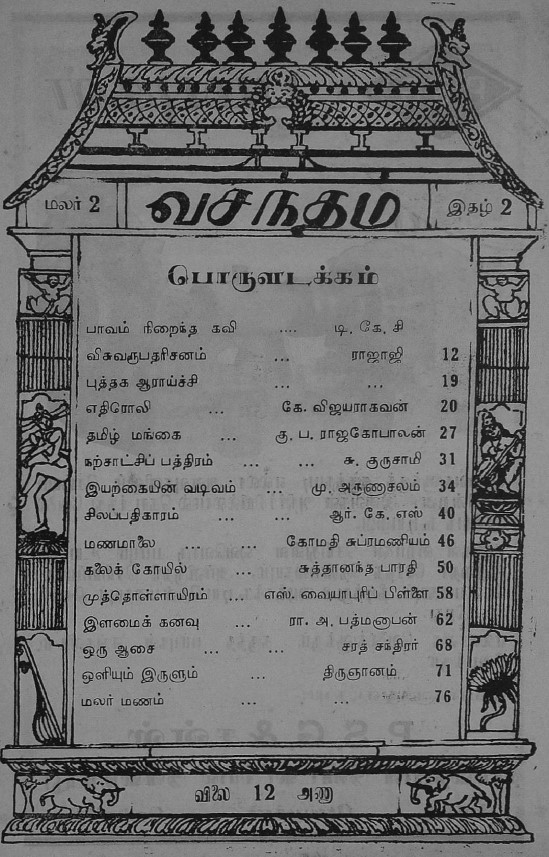 மலர் 2 வசந்தம் இதழ் 2
பொருளடக்கம்
பாவம் நிறைந்த கவி .... டி. கே. சி
விசுவரூபதரிசனம் ... ராஜாஜி 12
புத்தக ஆராய்ச்சி ... ... 19
எதிரொலி ... கே. விஜயராகவன் 20
தமிழ் மங்கை ... கு. ப. ராஜகோபாலன் 27
நற்சாட்சிப் பத்திரம் ... ... சு. குருசாமி 31
இயற்கையின் வடிவம் ... மு. அருணாசலம் 34
சிலப்பதிகாரம் ... ... ஆர். கே. எஸ் 40
மணமாலை ... ... கோமதி சுப்ரமணியம் 46
கலைக் கோயில் ... சுத்தானந்த பாரதி 50
முத்தொள்ளாயிரம் ... எஸ். வையாபுரிப் பிள்ளை 58
இளமைக் கனவு ... ரா. அ. பத்மனாபன் 62
ஒரு ஆசை ... ... சரத் சந்திரர் 68
ஒளியும் இருளும் ... திருஞானம் 71
மலர் மணம் ... ... 76
விலை 12 அணா